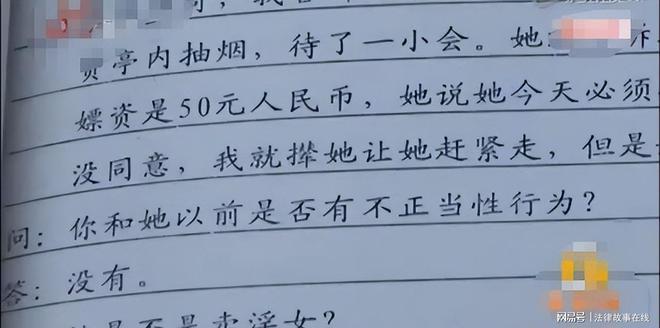 亭内抽烟，待了一小会。她
嫖资是50元人民币，她说她今天必须
没同意，我就撵她让她赶紧走，但是
问：你和她以前是否有不正当性行为？
答：没有。
是不是卖淫女？
网易号 | 法律故事在线